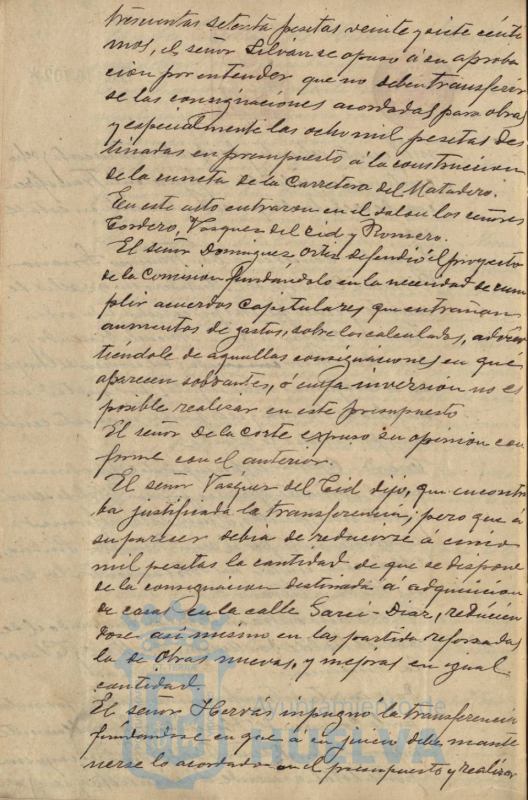 trescientas setenta pesetas veinte y siete cénti
mos, el señor Silván se opuso á su aproba
cion por entender que no deben transferir
se las consignaciones acordadas para obras
y especialmente las ocho mil pesetas des
tinadas en presupuesto á la construccion
de la cuneta de la Carretera del Matadero.
En este acto entraron en el salon los señores
Cordero, Vasquez del Cid y Romero.
El señor Dominguez Ortiz defendió el proyecto
de la Comision fundándolo en la necesidad de cum
plir acuerdos capitulares que entrañan
aumentos de gastos, sobre los calculados,
tiéndole de aquellas consignaciones en que
aparecen sobrantes, ó cuya inversion no es
posible realizar en este presupuesto
El señor De la Corte expuso su opinion con
forme con el anterior.
El señor Vasquez del Cid dijo, que encontra
ba justificada la transferencia; pero que á
su parecer debia de reducirse á cinco
mil pesetas la cantidad de que se dispone
de la consignacion destinada á adquisicion
de casas en la calle Garci-Diaz, reducien
dose asi mismo en las partida reforzadas
la de Obras nuevas, y mejoras en igual
cantidad.
El señor Hervás impugnó la transferencia
fundandose en que á su juicio debe mante
nerse lo acordado en el presupuesto y realizar
Ayuntamiento de
HUELVA